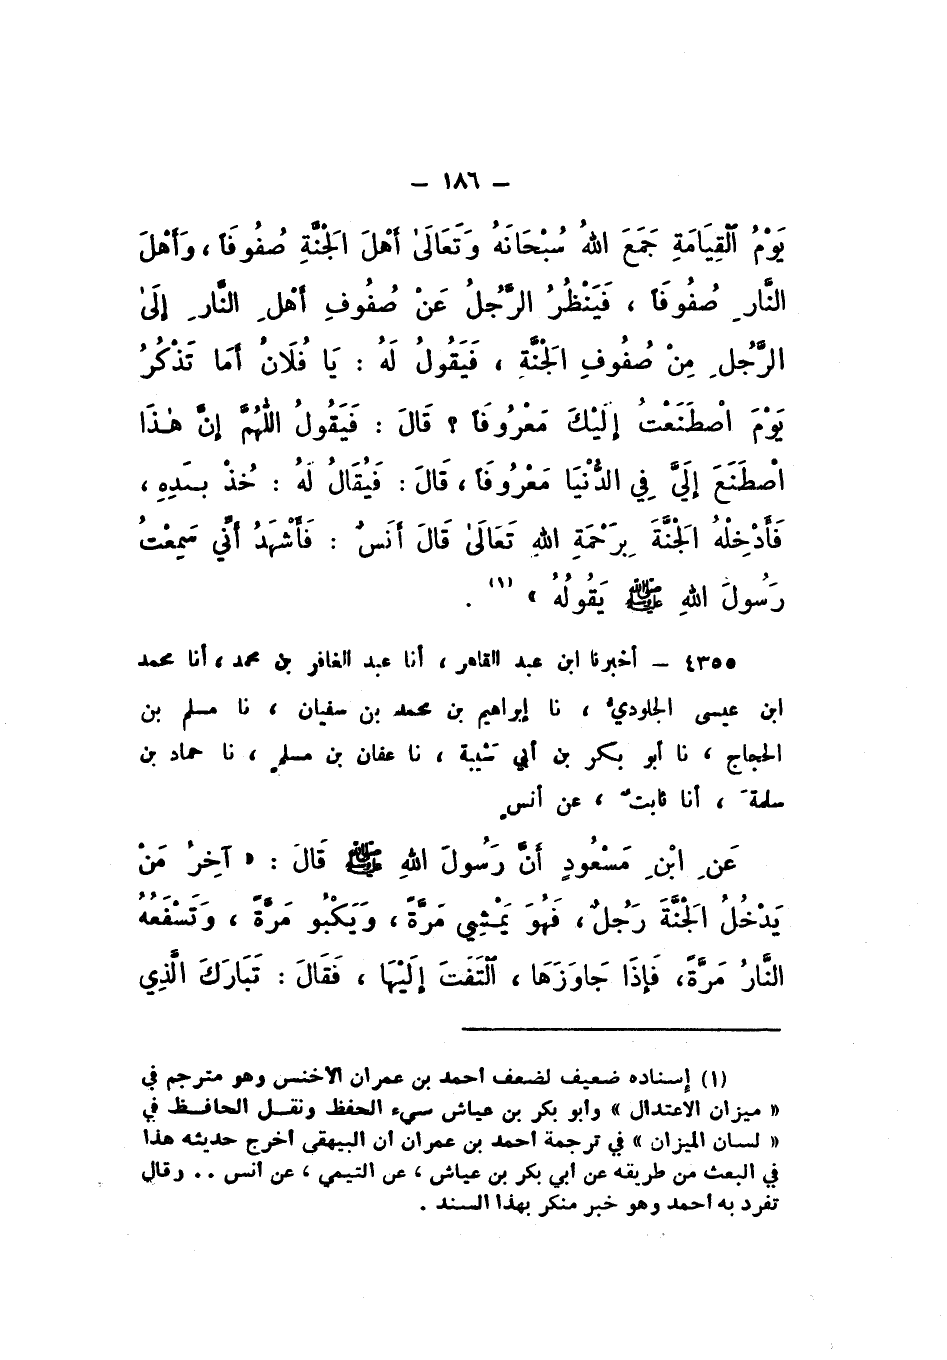 – ١٨٦ –
يَوْمُ ٱلْقِيَامَةِ جَمَعَ اللهُ سُبْحَانَهُ وَتَعَالَىٰ أَهْلَ الْجَنَّةِ صُفُوفَاً ، وَأَهْلَ
النَّارِ صُفُوفَاً ، فَيَنْظُرُ الرَّجُلُ عَنْ صُفُوفِ أَهْلِ النَّارِ إِلَىٰ
الرَّجُلِ مِنْ صُفُوفِ الْجَنَّةِ ، فَيَقُولُ لَهُ : يَا فُلَانُ أَمَا تَذْكُرُ
يَوْمَ اصْطَنَعْتُ إِلَيْكَ مَعْرُوفَاً ؟ قَالَ : فَيَقُولُ اللّٰهُمَّ إِنَّ هٰذَا
اصْطَنَعَ إِلَيَّ فِي الدُّنْيَا مَعْرُوفَاً ، قَالَ : فَيُقَالُ لَهُ : خُذْ بِيَدِهِ ،
فَأَدْخِلْهُ الْجَنَّةَ بِرَحْمَةِ اللهِ تَعَالَىٰ قَالَ أَنَسٌ : فَأَشْهَدُ أَنِّي سَمِعْتُ
رَسُولَ اللهِ ﷺ يَقُولُهُ » (١) .
٤٣٥٥ – أخبرنا ابن عبد القاهر ، أنا عبد الغافر بن محمد ، أنا محمد
ابن عيسى الجلوديُّ ، نا إبراهيم بن محمد بن سفيان ، نا مسلم بن
الحجاج ، نا أبو بكر بن أبي شَيبة ، نا عفان بن مسلمٍ ، نا حماد بن
سلمةَ ، أنا ثابتٌ ، عن أنسٍ
عَنِ ابْنِ مَسْعُودٍ أَنَّ رَسُولَ اللهِ ﷺ قَالَ : « آخِرُ مَنْ
يَدْخُلُ الْجَنَّةَ رَجُلٌ ، فَهُوَ يَمْشِي مَرَّةً ، وَيَكْبُو مَرَّةً ، وَتَسْفَعُهُ
النَّارُ مَرَّةً ، فَإِذَا جَاوَزَهَا ، ٱلْتَفَتَ إِلَيْهَا ، فَقَالَ : تَبَارَكَ الَّذِي
(١) إسناده ضعيف لضعف أحمد بن عمران الأخنس وهو مترجم في
« ميزان الاعتدال » وأبو بكر بن عياش سيء الحفظ ونقل الحافظ في
« لسان الميزان » في ترجمة أحمد بن عمران أن البيهقي أخرج حديثه هذا
في البعث من طريقه عن أبي بكر بن عياش ، عن التيمي ، عن أنس .. وقال
تفرد به أحمد وهو خبر منكر بهذا السند .